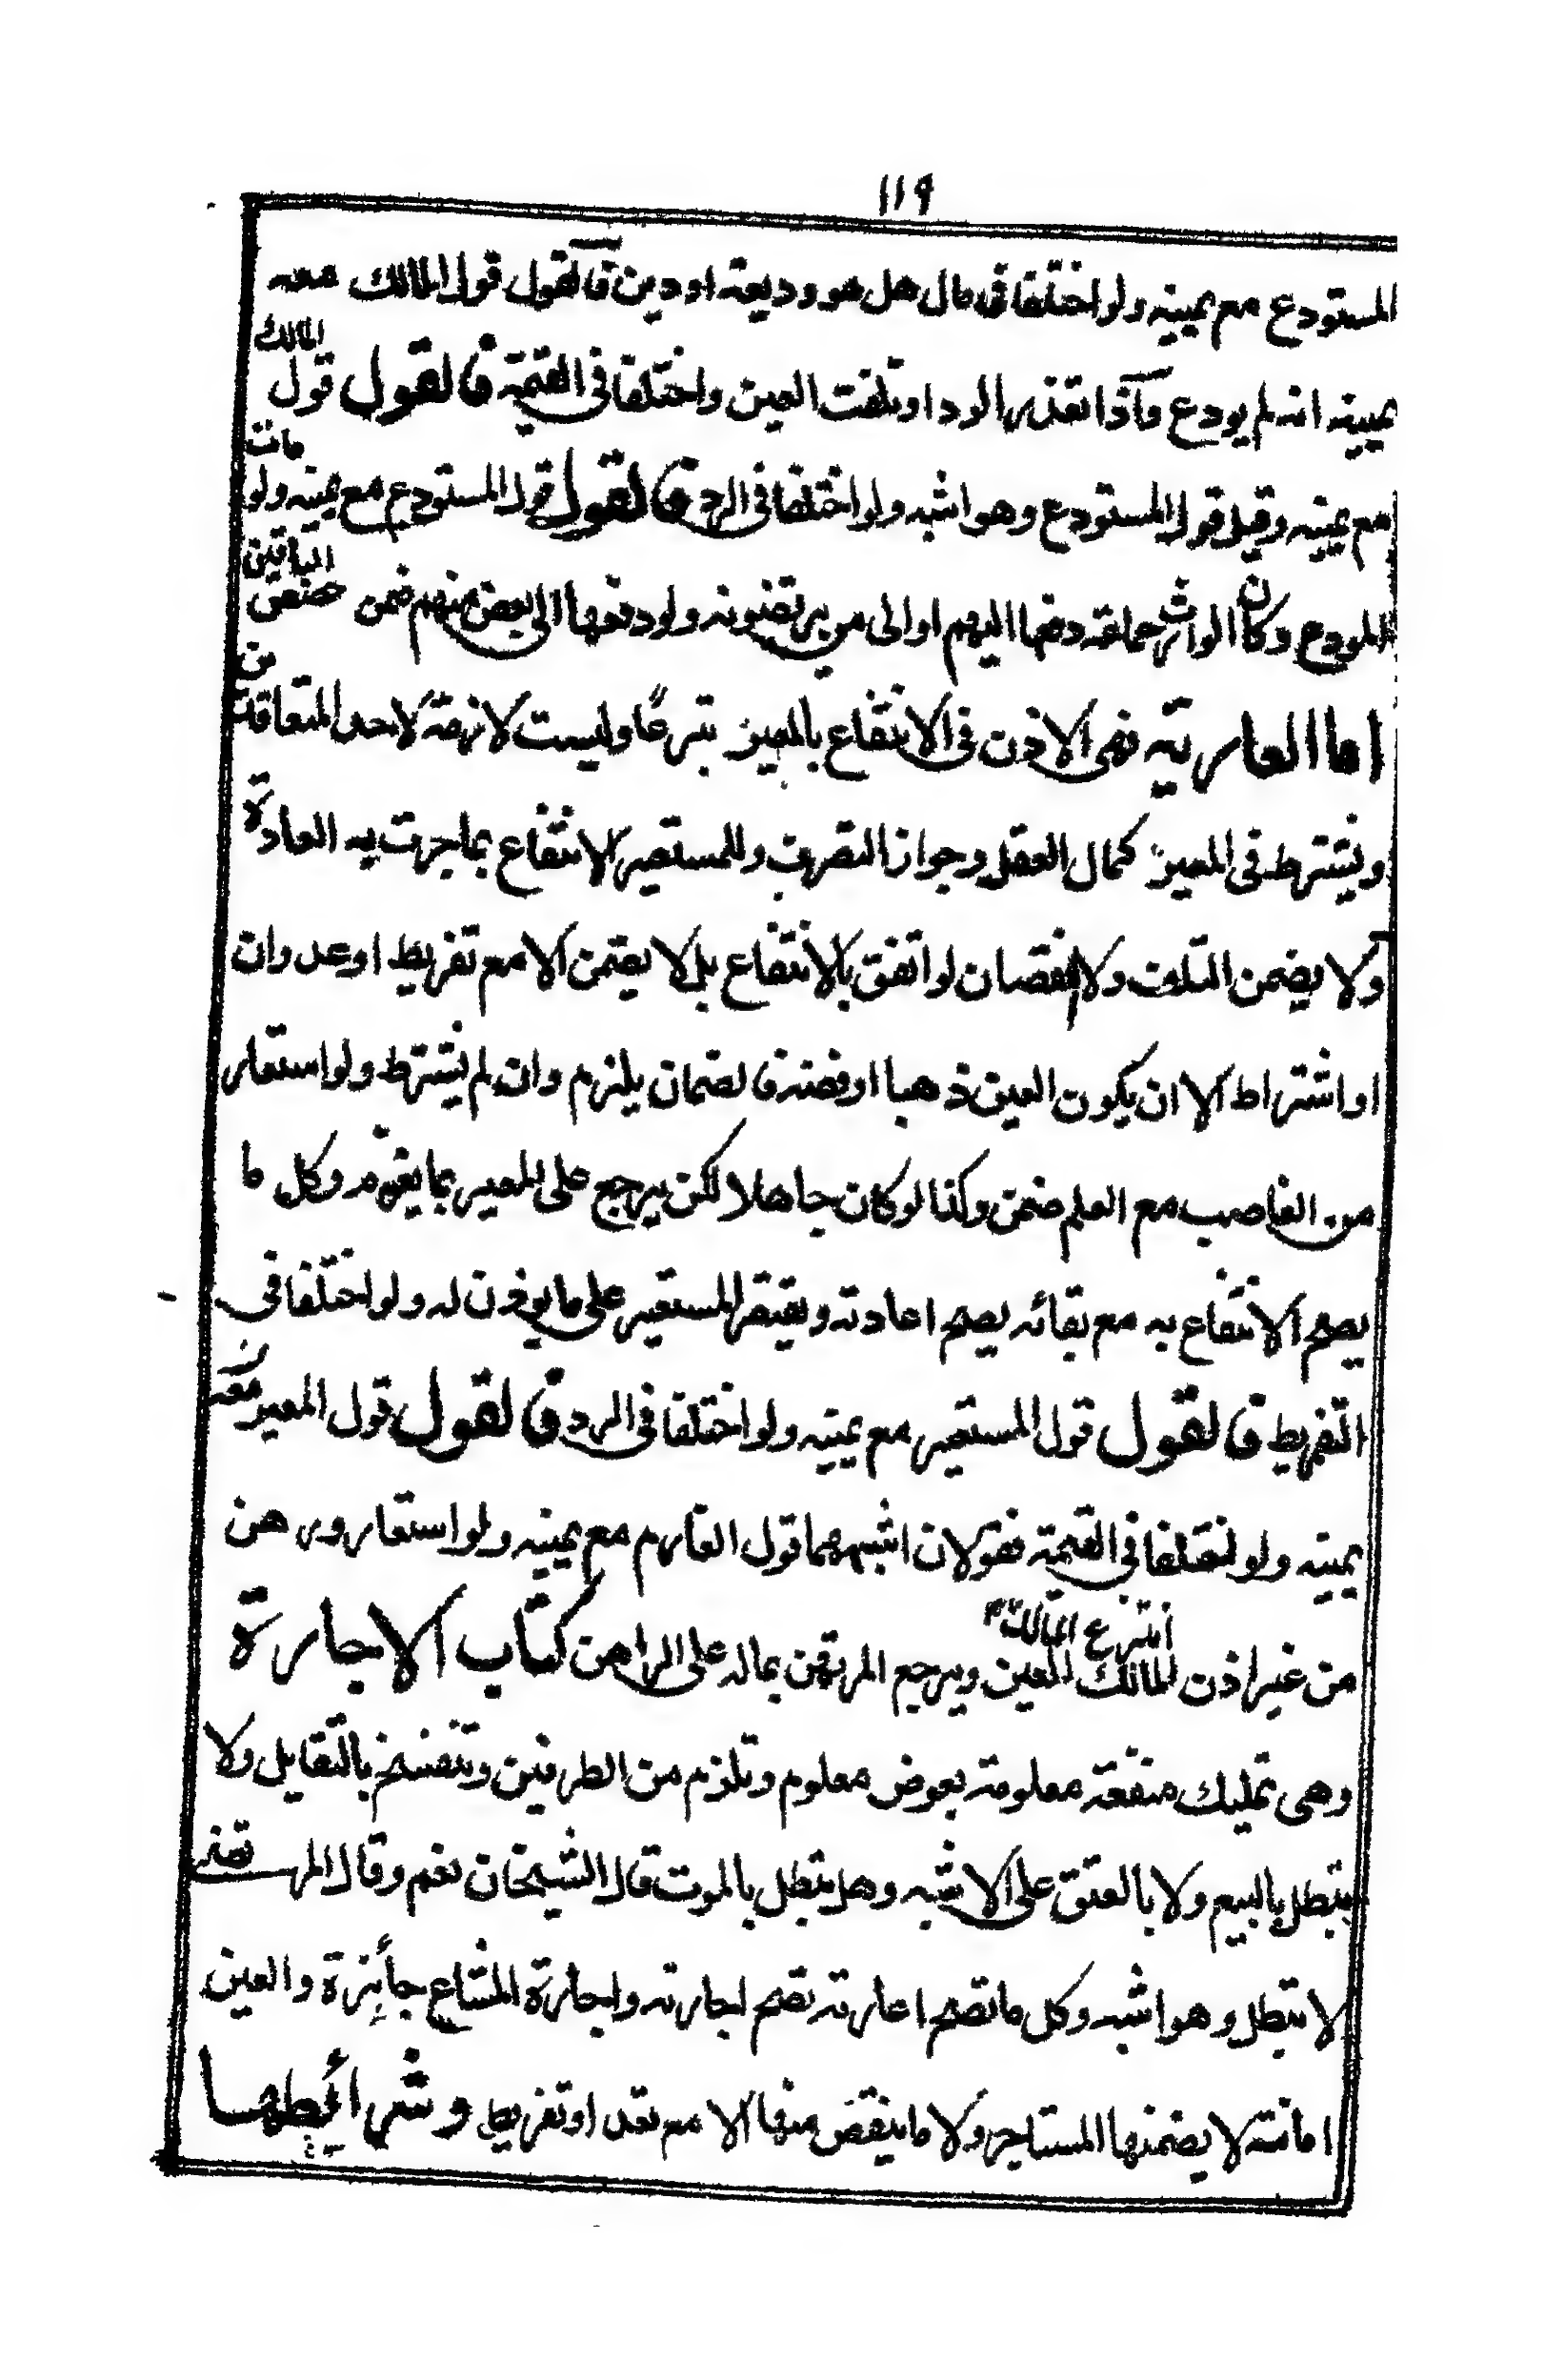 ١١٩
المستودع مع يمينه ولو اختلفا فى مال هل هو وديعة او دين فالقول قول المالك معه
يمينه انه لم يودع واذا تعذر الرد او تلفت العين واختلفا فى القيمة فالقول قول المالك
مع يمينه وقيل قول المستودع وهو اشبه ولو اختلفا فى الرد فالقول قول المستودع مع يمينه ولو مات
المودع وكان الوارث جماعة دفعها اليهم او الى من يرتضونه ولو دفعها الى بعض منهم ضمن حصص الباقين
اما العارية فهى الاذن فى الانتفاع بالعين تبرعا وليست لازمة لاحد المتعاقدين
ويشترط فى المعير كمال العقل وجواز التصرف وللمستعير الانتفاع بما جرت به العادة
ولا يضمن التلف ولا النقصان لو اتفق بالانتفاع بل لا يضمن الا مع تفريط او عدوان
او اشتراط الا ان يكون العين ذهبا او فضة فالضمان يلزم وان لم يشترط ولو استعار
من الغاصب مع العلم ضمن وكذا لو كان جاهلا لكن يرجع على المعير بما يغرم وكل ما
يصح الانتفاع به مع بقائه يصح اعادته ويقتصر المستعير على ما يوذن له ولو اختلفا فى
التفريط فالقول قول المستعير مع يمينه ولو اختلفا فى الرد فالقول قول المعير مع
يمينه ولو اختلفا فى القيمة فقولان اشبههما قول الغارم مع يمينه ولو استعار ورهن
من غير اذن المالك انتزع المالك العين ويرجع المرتهن بماله على الراهن كتاب الاجارة
وهى تمليك منفعة معلومة بعوض معلوم وتلزم من الطرفين وتنفسخ بالتقايل ولا
يبطل بالبيع ولا بالعتق على الاشبه وهل يبطل بالموت قال الشيخان نعم وقال المرتضى
لا تبطل وهو اشبه وكل ما تصح اعارته تصح اجارته واجارة المشاع جائزة والعين
امانة لا يضمنها المستاجر ولا ما ينقص منها الا مع تعد او تفريط وشرائطها